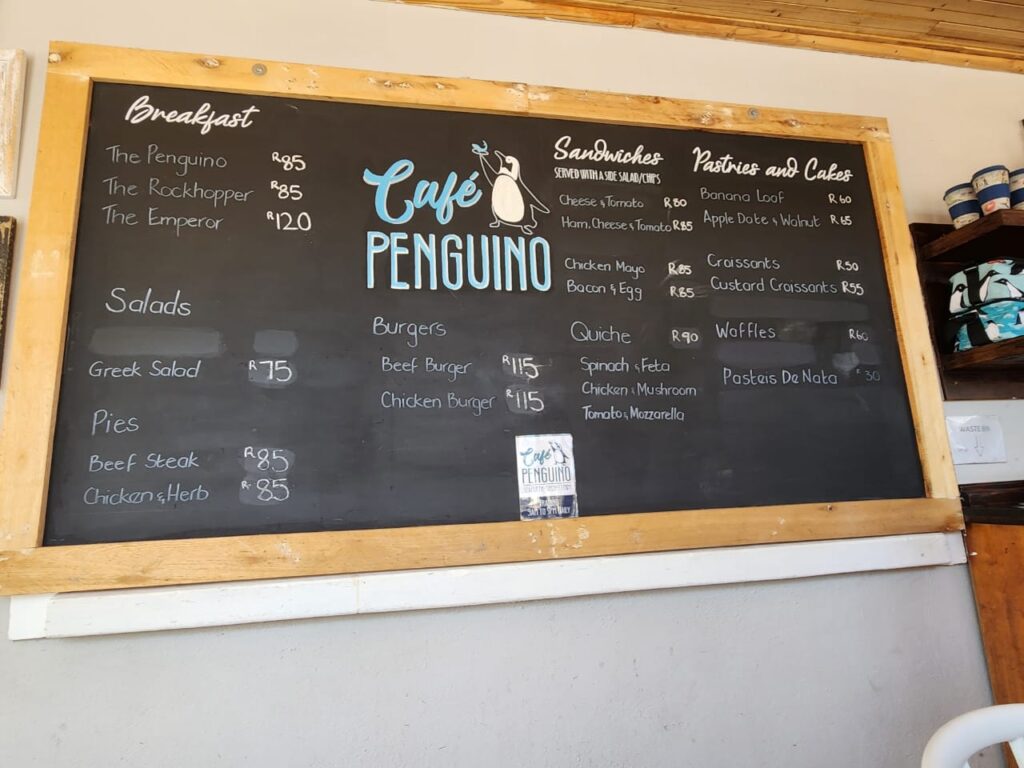 Breakfast
The Penguino R85
The Rockhopper R85
The Emperor R120
Salads
Greek Salad R75
Pies
Beef Steak R85
Chicken & Herb R85
Café
PENGUINO
Burgers
Beef Burger R115
Chicken Burger R115
Café
PENGUINO
Sandwiches
SERVED WITH A SIDE SALAD/CHIPS
Cheese & Tomato R80
Ham, Cheese & Tomato R85
Chicken Mayo R85
Bacon & Egg R85
Quiche R90
Spinach & Feta
Chicken & Mushroom
Tomato & Mozzarella
Pastries and Cakes
Banana Loaf R60
Apple Date & Walnut R65
Croissants R50
Custard Croissants R55
Waffles R60
Pasteis De Nata R30